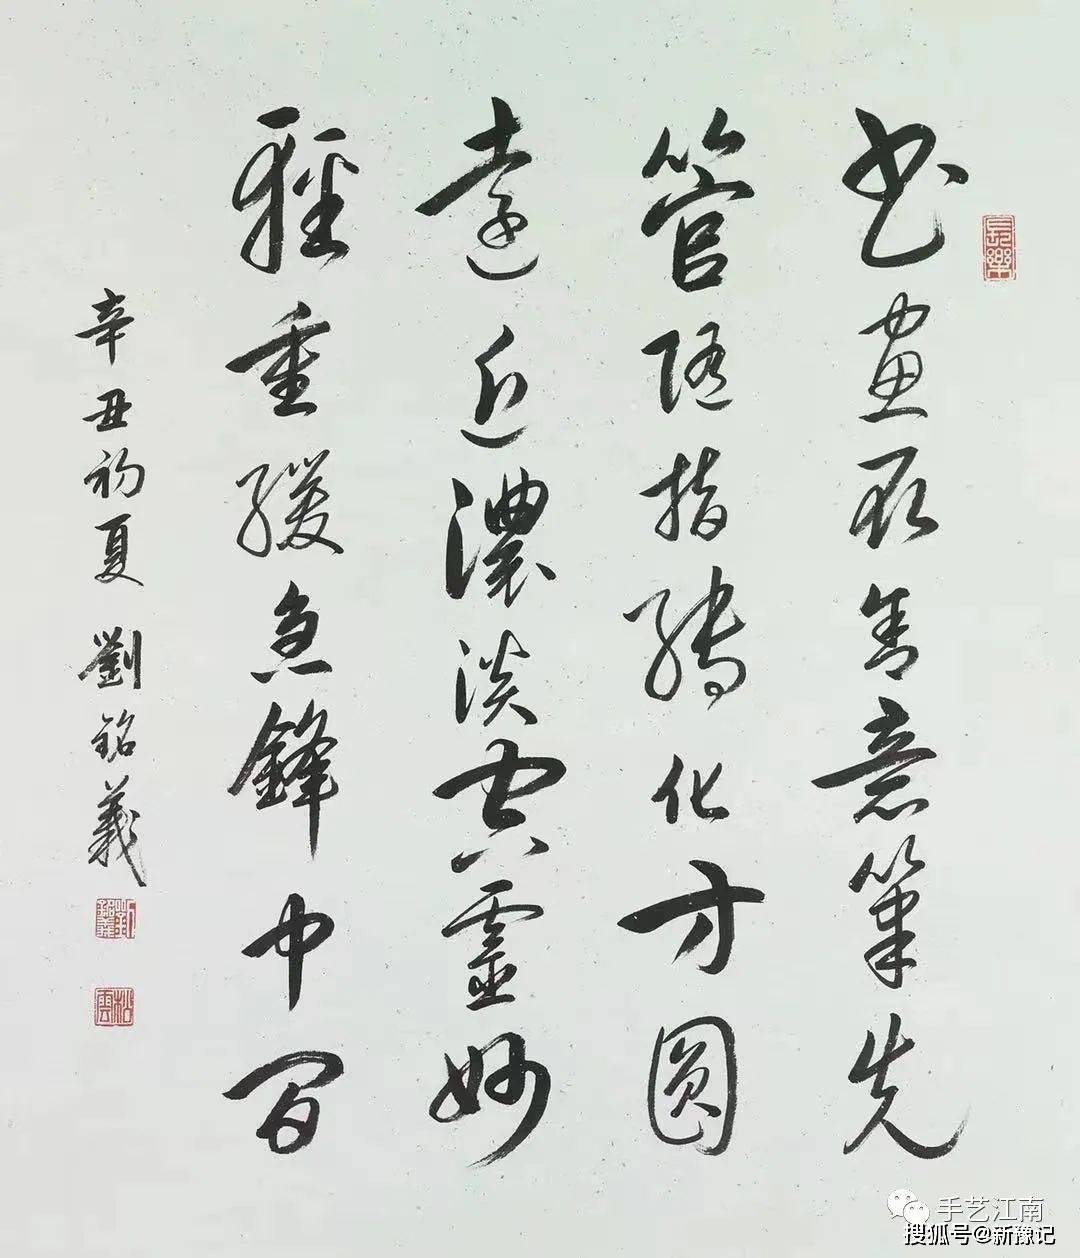 長樂
書畫取舍意筆先
管随指轉化方圓
遠近濃淡空靈妙
輕重緩急鋒中間
辛丑初夏 劉銘義
松雲
手艺江南
搜狐号@新豫记